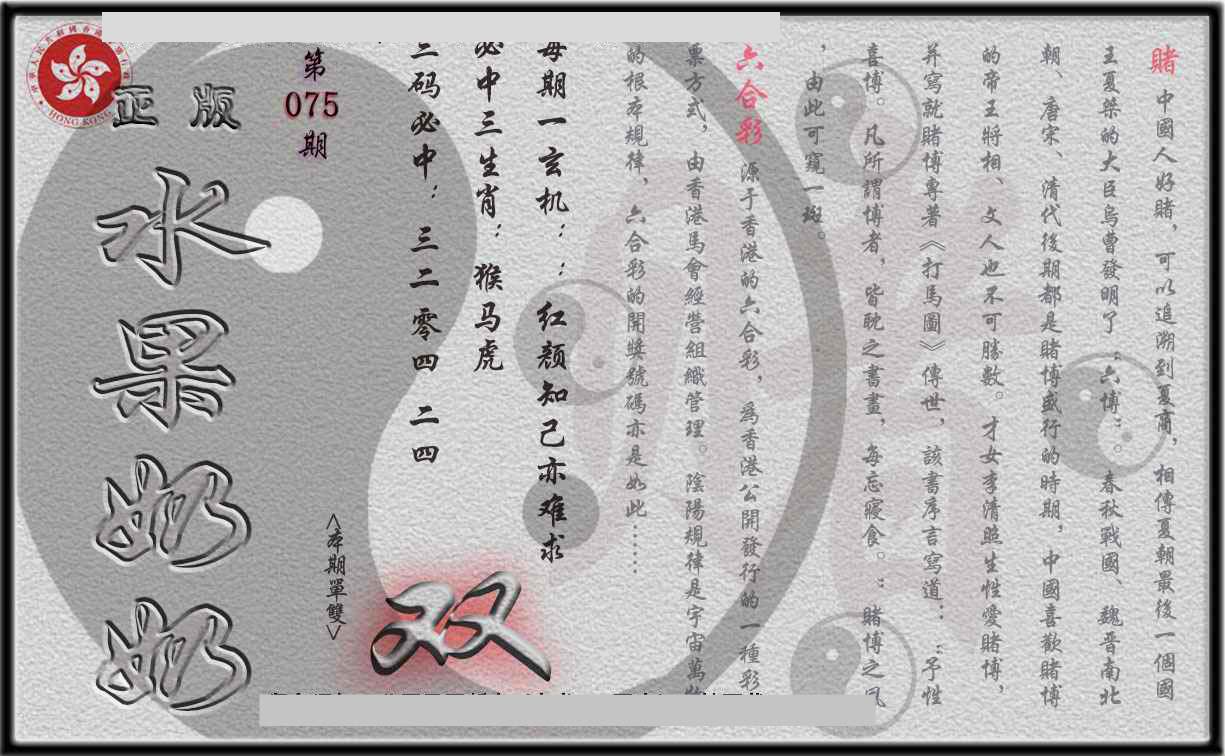 賭 中國人好賭，可以追溯到夏商，相傳夏朝最後一個國
王夏桀的大臣烏曹發明了“六博”。春秋戰國、魏晋南北
朝、唐宋、清代後期都是賭博盛行的時期，中國喜歡賭博
的帝王將相、文人也不可勝數。才女李清照生性愛賭博，
并寫就賭博專著《打馬圖》傳世，該書序言寫道：“予性
喜博。凡所謂博者，皆耽之書畫，每忘寢食。”賭博之风
，由此可窺一斑。
六合彩 源于香港的六合彩，爲香港公開發行的一種彩
票方式，由香港馬會經營組織管理。陰陽規律是宇宙萬物
的根本規律，六合彩的開獎號碼亦是如此……
每期一玄机：“红颜知己亦难求
必中三生肖：猴马虎
三码必中：三二 零四 二四
第
075
期
<本期單雙>
双
正版
水果奶奶
HONG KONG